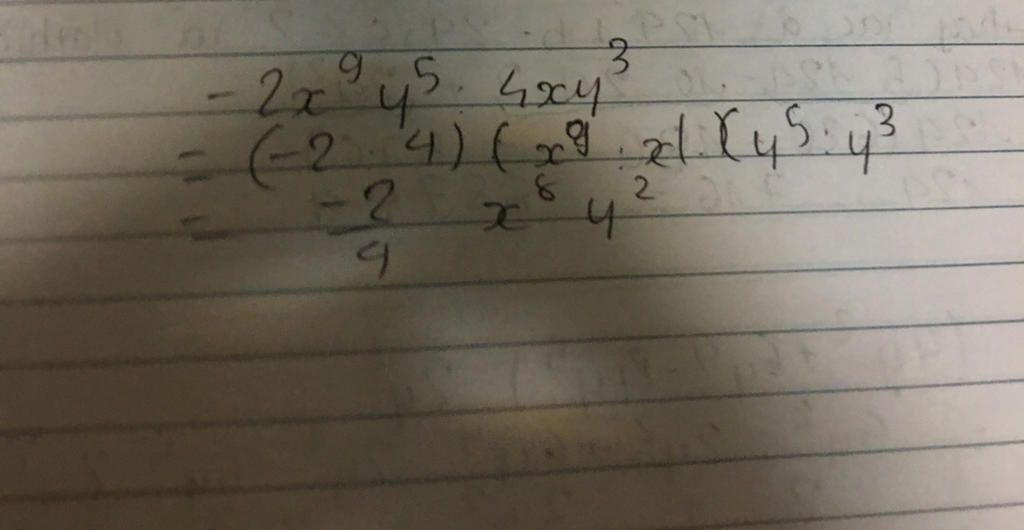 - 2x⁹ y⁵ : 4xy³
= (-2 : 4) (x⁹ : x) . (y⁵ : y³
= -2/4 x⁸ y²